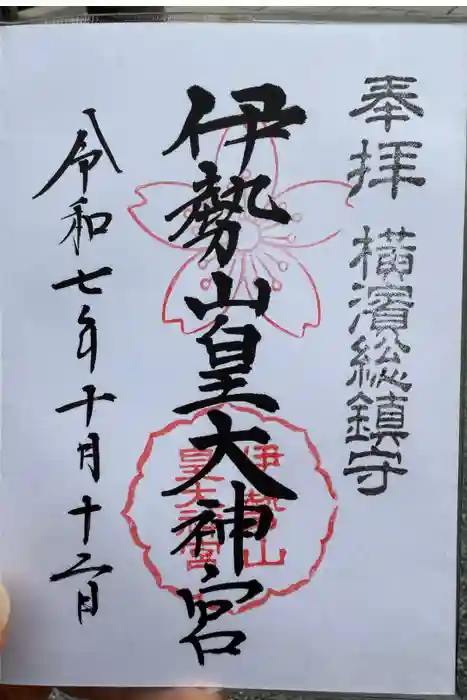 奉拝 横濱総鎮守
伊勢山皇大神宮
伊勢山
皇大神宮
令和七年十月十二日